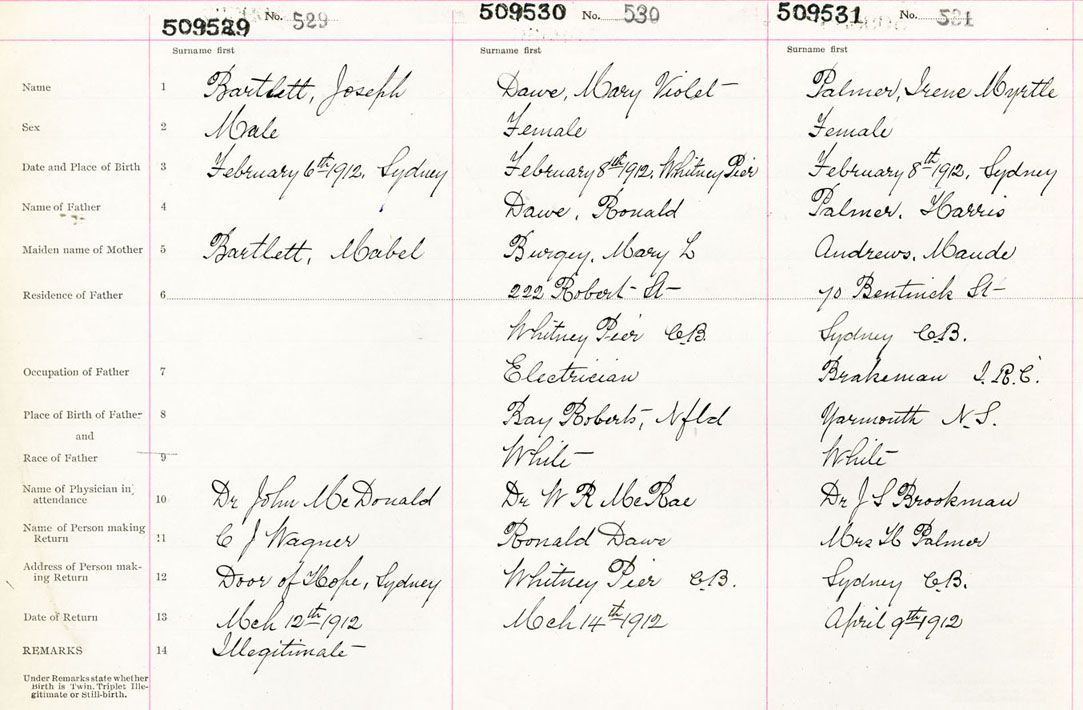 509529 No. 529 509530 No. 530 509531 No. 531
Surname first Surname first Surname first
Name 1 Bartlett, Joseph Dawe, Mary Violet Palmer, Irene Myrtle
Sex 2 Male Female Female
Date and Place of Birth 3 February 6th 1912, Sydney February 8th 1912, Whitney Pier February 8th 1912, Sydney
Name of Father 4 Dawe, Ronald Palmer, Harris
Maiden name of Mother 5 Bartlett, Mabel Burgey, Mary L Andrews, Maude
Residence of Father 6 222 Robert St 70 Bentinck St
Whitney Pier C.B. Sydney C.B.
Occupation of Father 7 Electrician Brakeman I.R.C.
Place of Birth of Father 8 Bay Roberts, Nfld Yarmouth N.S.
and
Race of Father 9 White White
Name of Physician in
attendance 10 Dr John McDonald Dr W R McRae Dr J S Brookman
Name of Person making
Return 11 C J Wagner Ronald Dawe Mrs H Palmer
Address of Person mak-
ing Return 12 Door of Hope, Sydney Whitney Pier C.B. Sydney C.B.
Date of Return 13 Mch 12th 1912 Mch 14th 1912 April 9th 1912
REMARKS 14 Illegitimate
Under Remarks state whether
Birth is Twin, Triplet Ille-
gitimate or Still-birth.